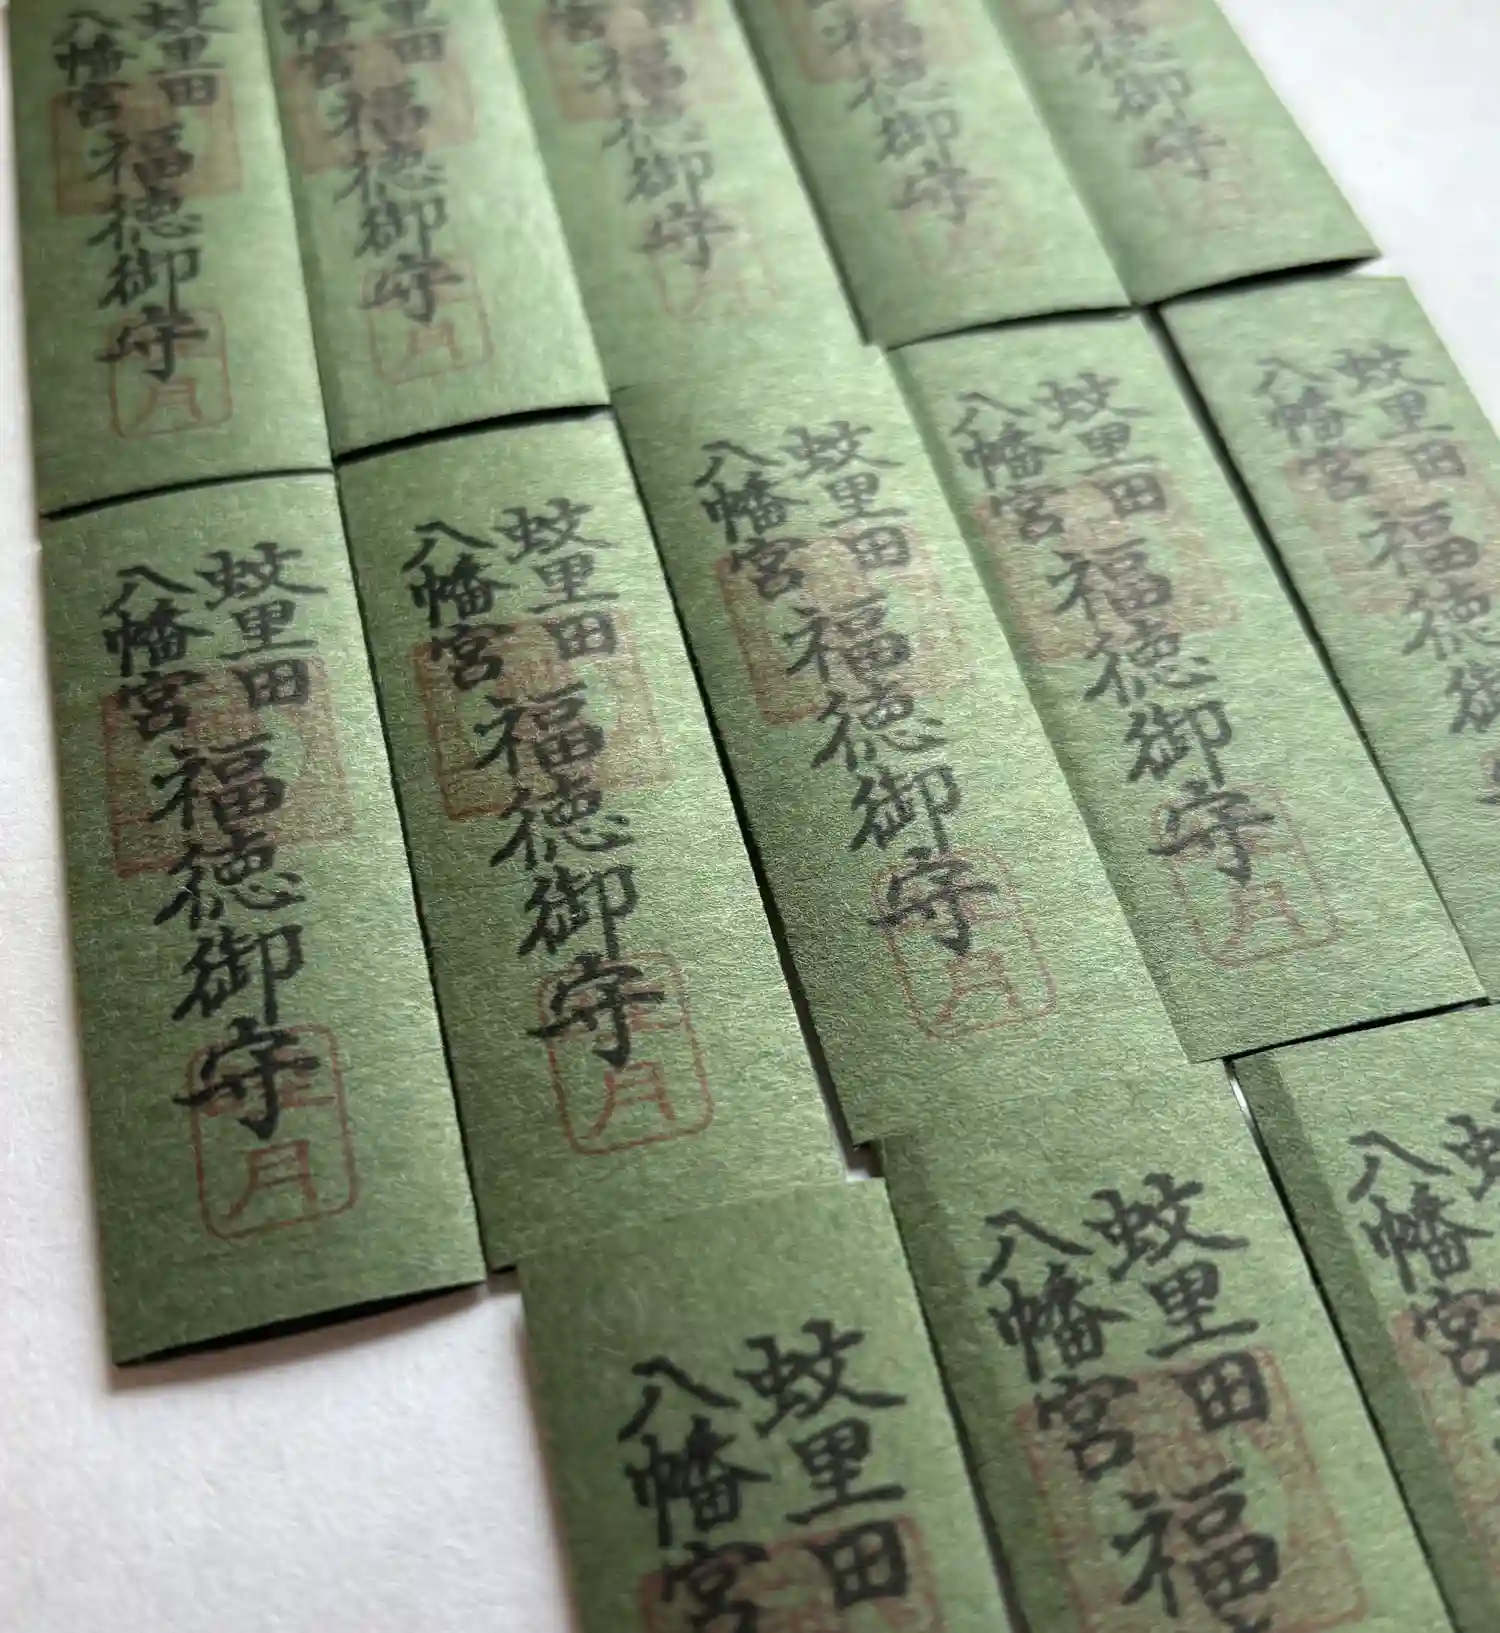 蚊里田
八幡宮
福徳御守
月
田
幡宮
福徳御守
月
宮
福徳御守
月
福徳御守
徳御守
蚊里田
八幡宮
福徳御守
月
蚊里田
八幡宮
福徳御守
月
蚊里田
八幡宮
福徳御守
月
蚊里田
八幡宮
福徳御守
月
蚊里田
八幡宮
福徳御
蚊里田
八幡宮
蚊里田
八幡宮
福
蚊
八幡宮